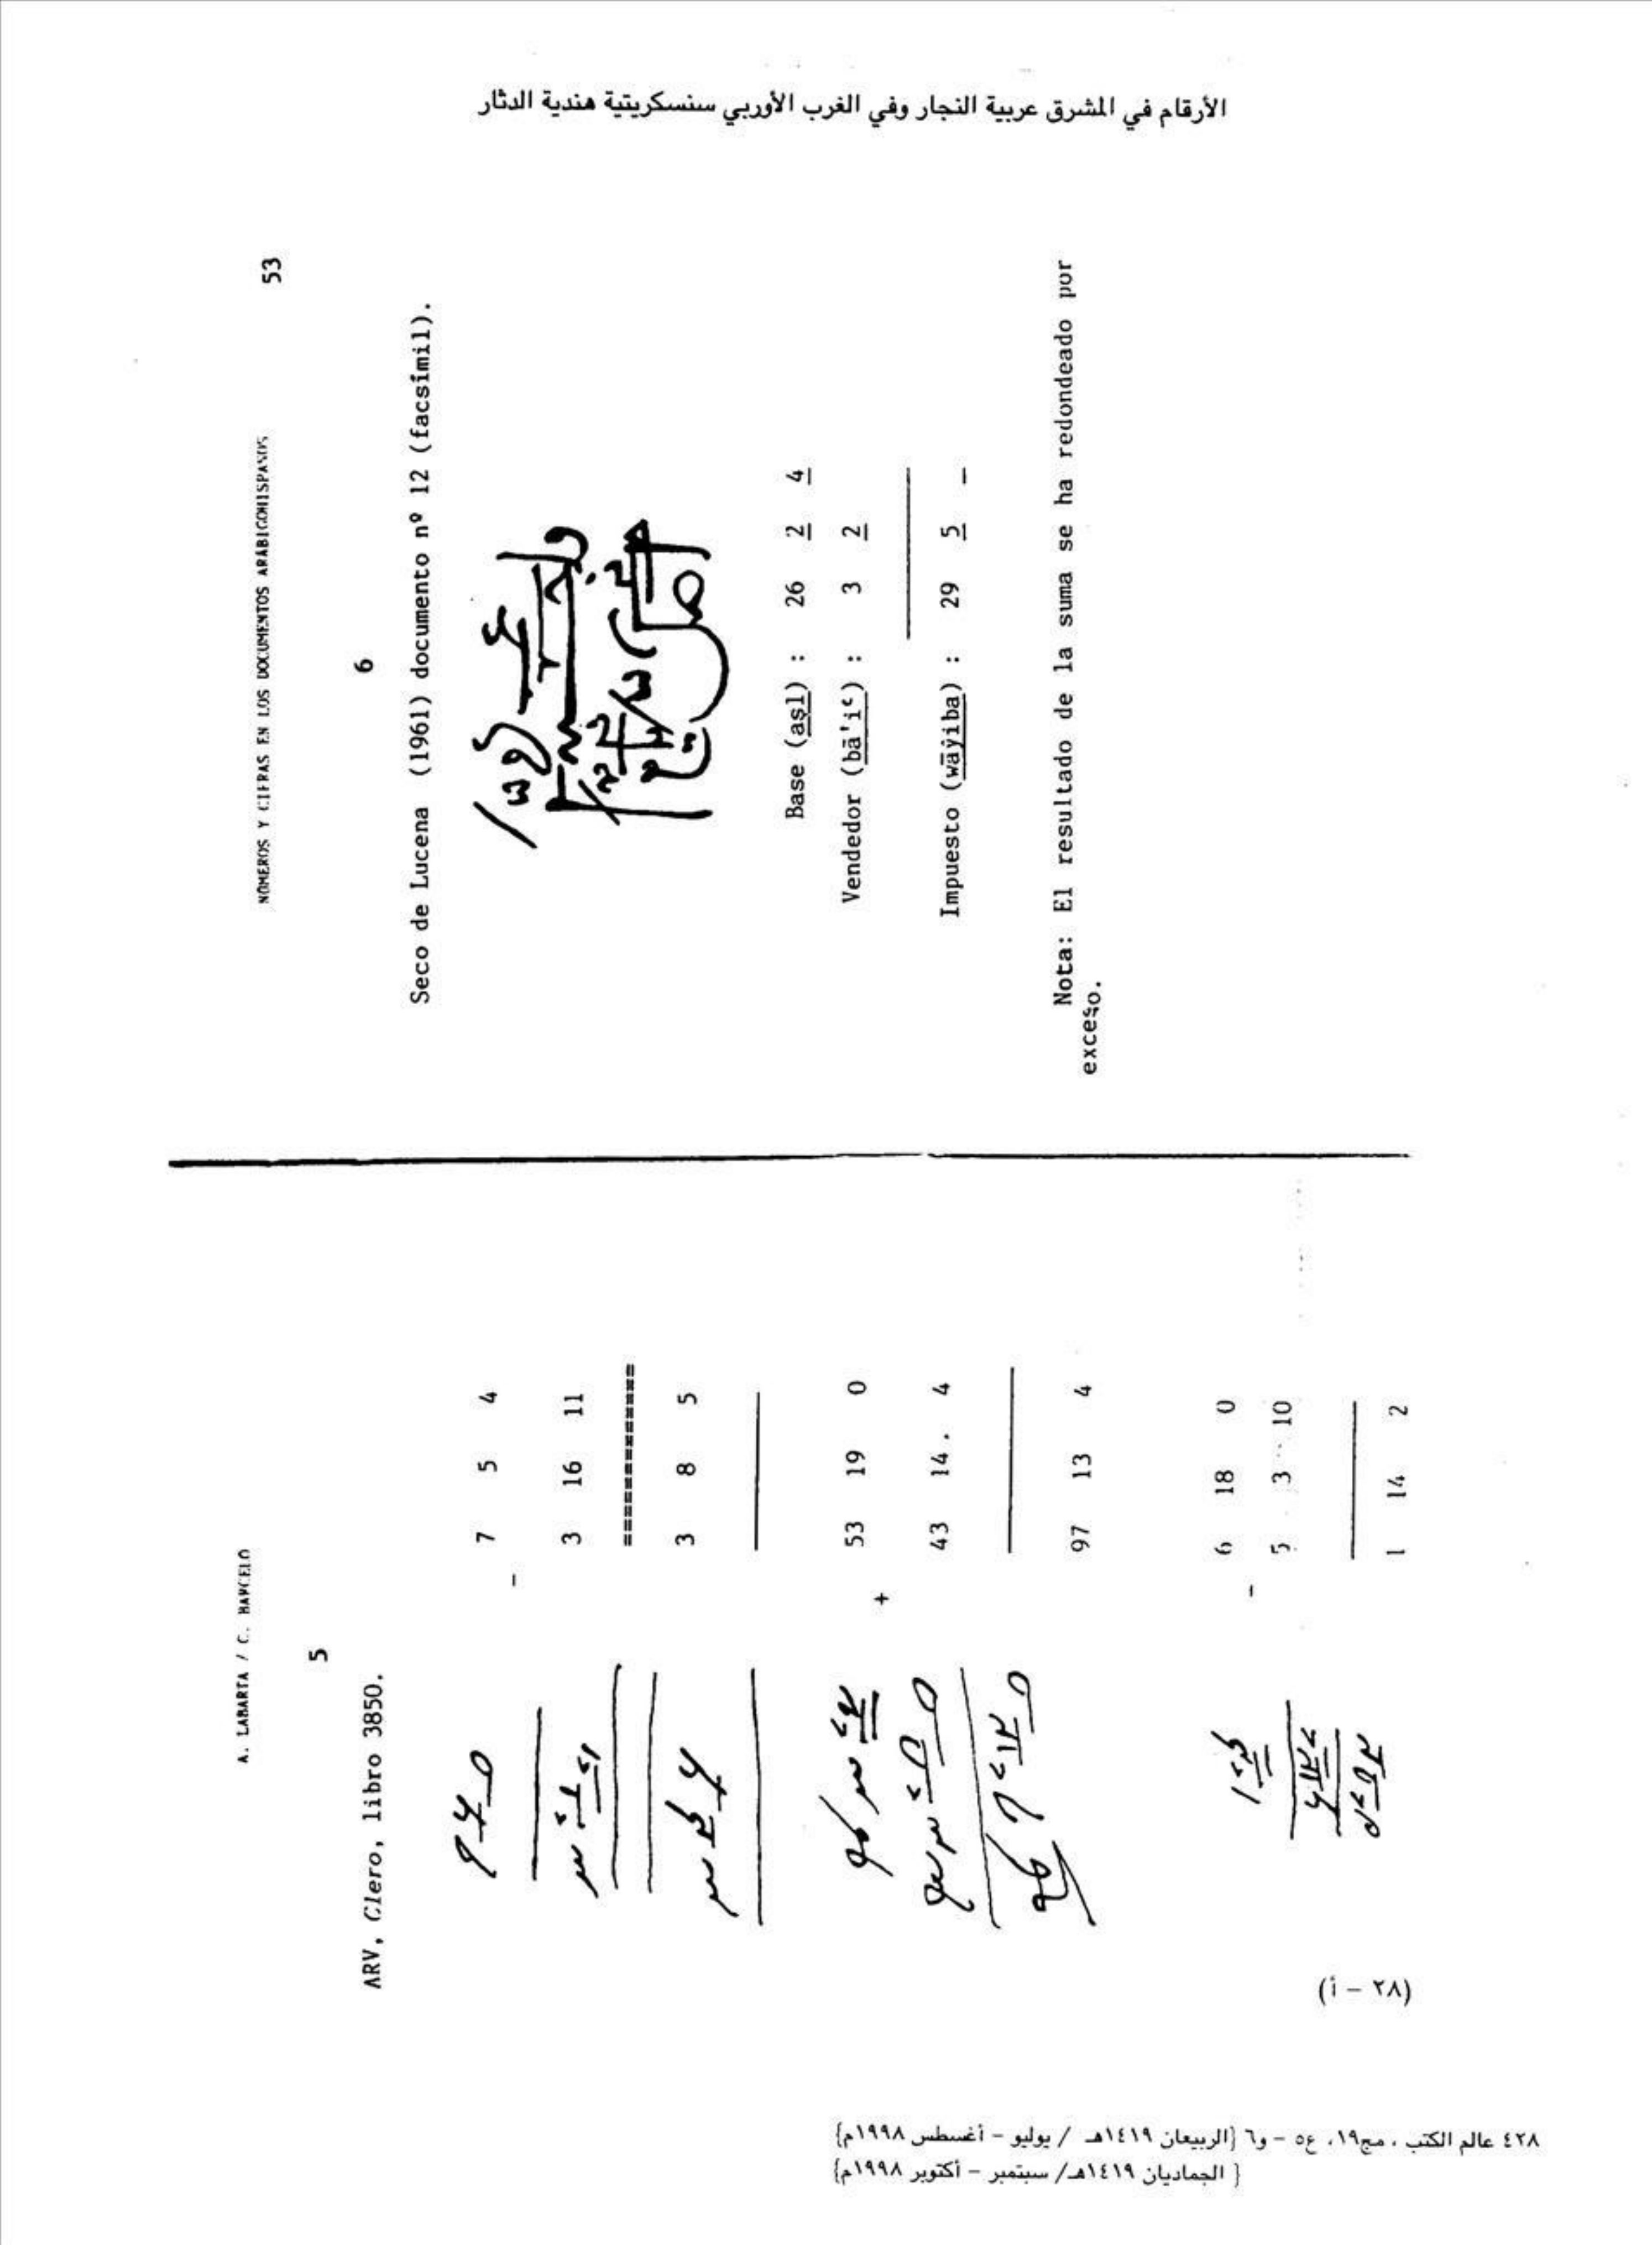 الأرقام في المشرق عربية النجار وفي الغرب الأوربي سنسكريتية هندية الدثار
A. LABARTA / C. BARCELO
5
ARV, Clero, libro 3850.
7 5 4
-
3 16 11
============
3 8 5
53 19 0
+
43 14. 4
97 13 4
6 18 0
-
5 3 10
1 14 2
NÚMEROS Y CIFRAS EN LOS DOCUMENTOS ARÁBIGOHISPANOS
53
6
Seco de Lucena (1961) documento nº 12 (facsímil).
Base (aṣl) : 26 2 4
Vendedor (bā'iʿ) : 3 2
Impuesto (wāŷiba) : 29 5 –
Nota: El resultado de la suma se ha redondeado por
exceso.
(٢٨ – أ)
٤٢٨ عالم الكتب ، مج١٩، ع٥ – و٦ {الربيعان ١٤١٩هـ / يوليو – أغسطس ١٩٩٨م}
{ الجماديان ١٤١٩هـ/ سبتمبر – أكتوبر ١٩٩٨م}